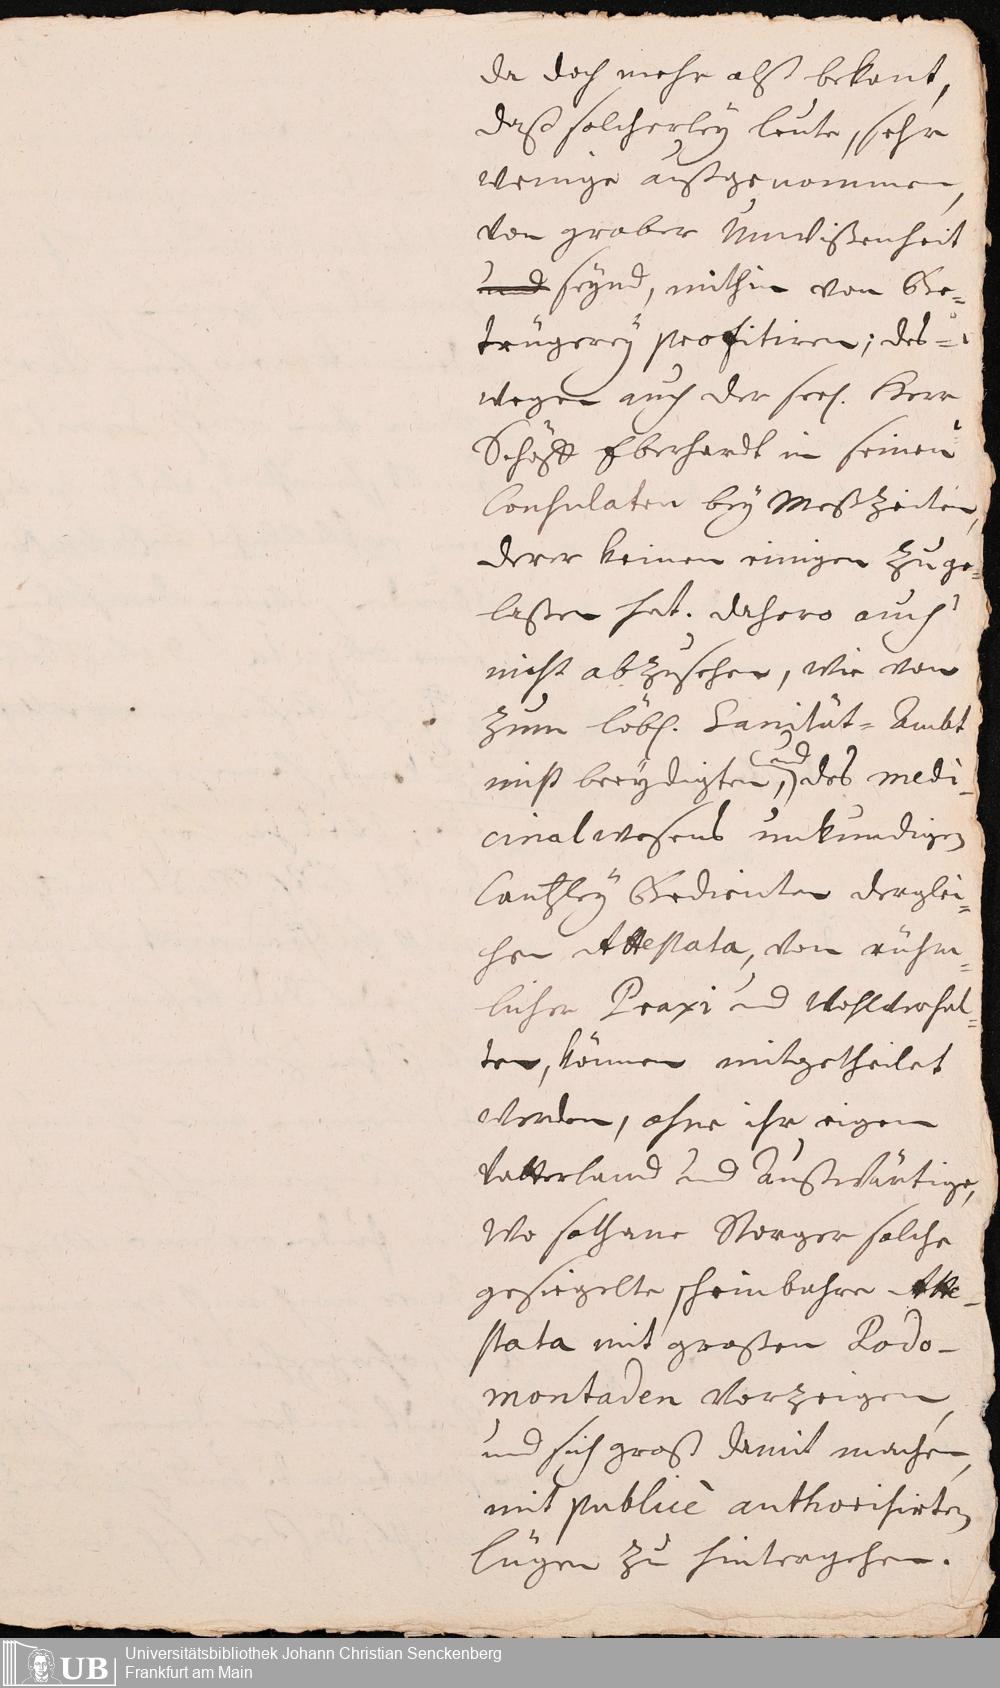 da doch mehr alß bekant,
daß solcherley leute, sehr
wenige außgenommen,
von grober Unwißenheit
und seynd, mithin von Be=
trügerey profitiren; des=
wegen auch der seel. Herr
Schöff Eberhardt in seinen
Consulaten bey Meßzeiten,
derer keinen einigen zuge=
laßen hat. dahero auch
nicht abzusehen, wie von
zum löbl. Sanität= Ambt
nicht beeydigten, und des medi-
cinalwesens unkundigen
Cantzley Bedienten derglei=
chen Attestata, von rühm=
licher Praxi und Wohlverhal=
ten, können mitgetheilet
werden, ohne ihr eigen
Vatterland und Außwärtige,
wo sothane Storger solche
gesiegelte scheinbahre Atte-
stata mit großen Rodo-
montaden vorzeigen,
und sich groß damit machen,
mit publicè authorisirten
lügen zu hintergehen.
UB
Universitätsbibliothek Johann Christian Senckenberg
Frankfurt am Main